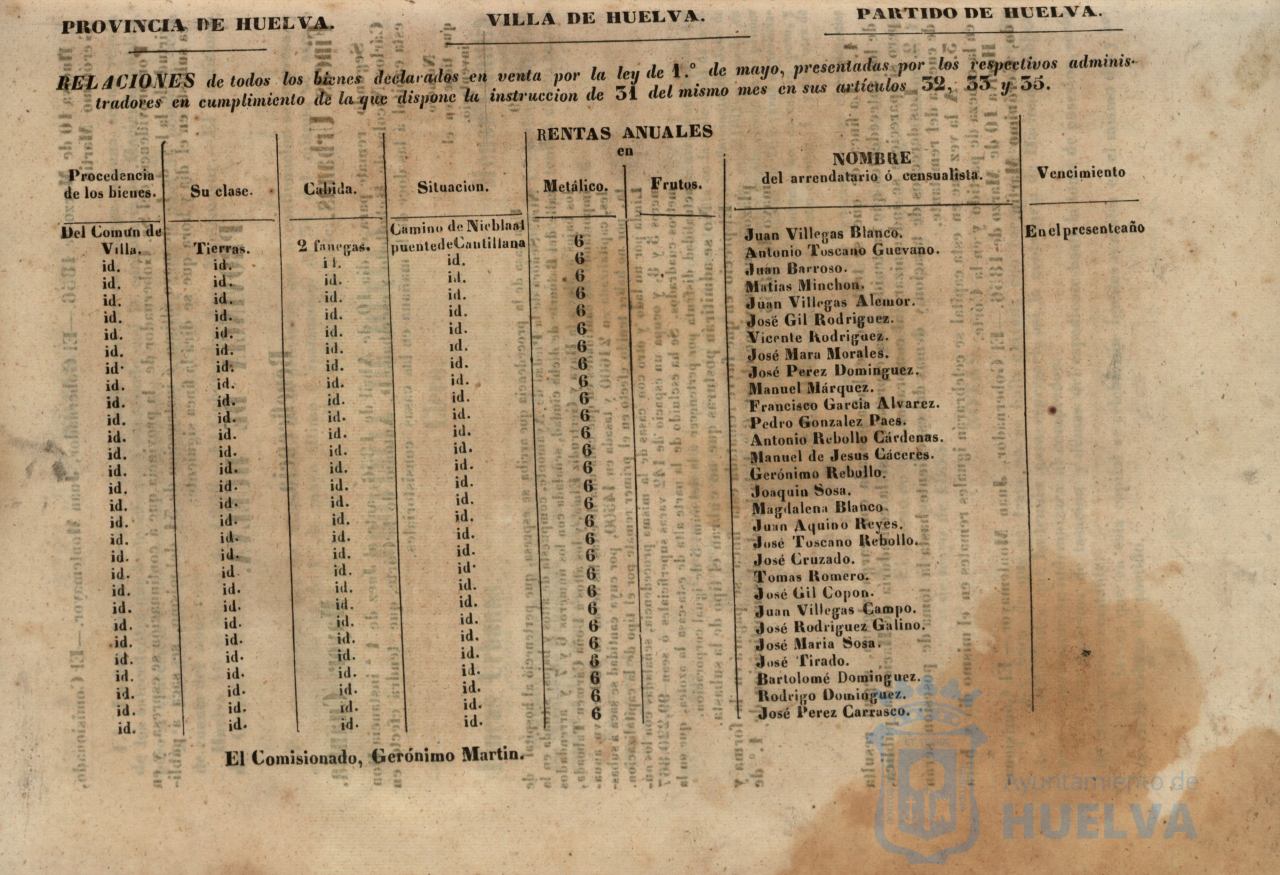 PROVINCIA DE HUELVA. VILLA DE HUELVA. PARTIDO DE HUELVA.
RELACIONES de todos los bienes declarados en venta por la ley de 1.º de mayo, presentadas por los respectivos adminis-
tradores en cumplimiento de la que dispone la instruccion de 31 del mismo mes en sus artículos 32, 33 y 35.
RENTAS ANUALES
en
Procedencia de los bienes. Su clase. Cabida. Situacion. Metálico. Frutos. NOMBRE del arrendatario ó censualista. Vencimiento
Del Comun de Villa. Tierras. 2 fanegas. Camino de Niebla al puente de Cantillana 6 Juan Villegas Blanco. En el presente año
id. id. id. id. 6 Antonio Toscano Guevano.
id. id. id. id. 6 Juan Barroso.
id. id. id. id. 6 Matias Minchon.
id. id. id. id. 6 Juan Villegas Alemor.
id. id. id. id. 6 José Gil Rodriguez.
id. id. id. id. 6 Vicente Rodriguez.
id. id. id. id. 6 José Mara Morales.
id. id. id. id. 6 José Perez Dominguez.
id. id. id. id. 6 Manuel Márquez.
id. id. id. id. 6 Francisco Garcia Alvarez.
id. id. id. id. 6 Pedro Gonzalez Paes.
id. id. id. id. 6 Antonio Rebollo Cárdenas.
id. id. id. id. 6 Manuel de Jesus Cáceres.
id. id. id. id. 6 Gerónimo Rebollo.
id. id. id. id. 6 Joaquin Sosa.
id. id. id. id. 6 Magdalena Blanco.
id. id. id. id. 6 Juan Aquino Reyes.
id. id. id. id. 6 José Toscano Rebollo.
id. id. id. id. 6 José Cruzado.
id. id. id. id. 6 Tomas Romero.
id. id. id. id. 6 José Gil Copon.
id. id. id. id. 6 Juan Villegas Campo.
id. id. id. id. 6 José Rodriguez Galino.
id. id. id. id. 6 José Maria Sosa.
id. id. id. id. 6 José Tirado.
id. id. id. id. 6 Bartolomé Dominguez.
id. id. id. id. 6 Rodrigo Dominguez.
id. id. id. id. 6 José Perez Carrasco.
El Comisionado, Gerónimo Martin.
Ayuntamiento de
HUELVA